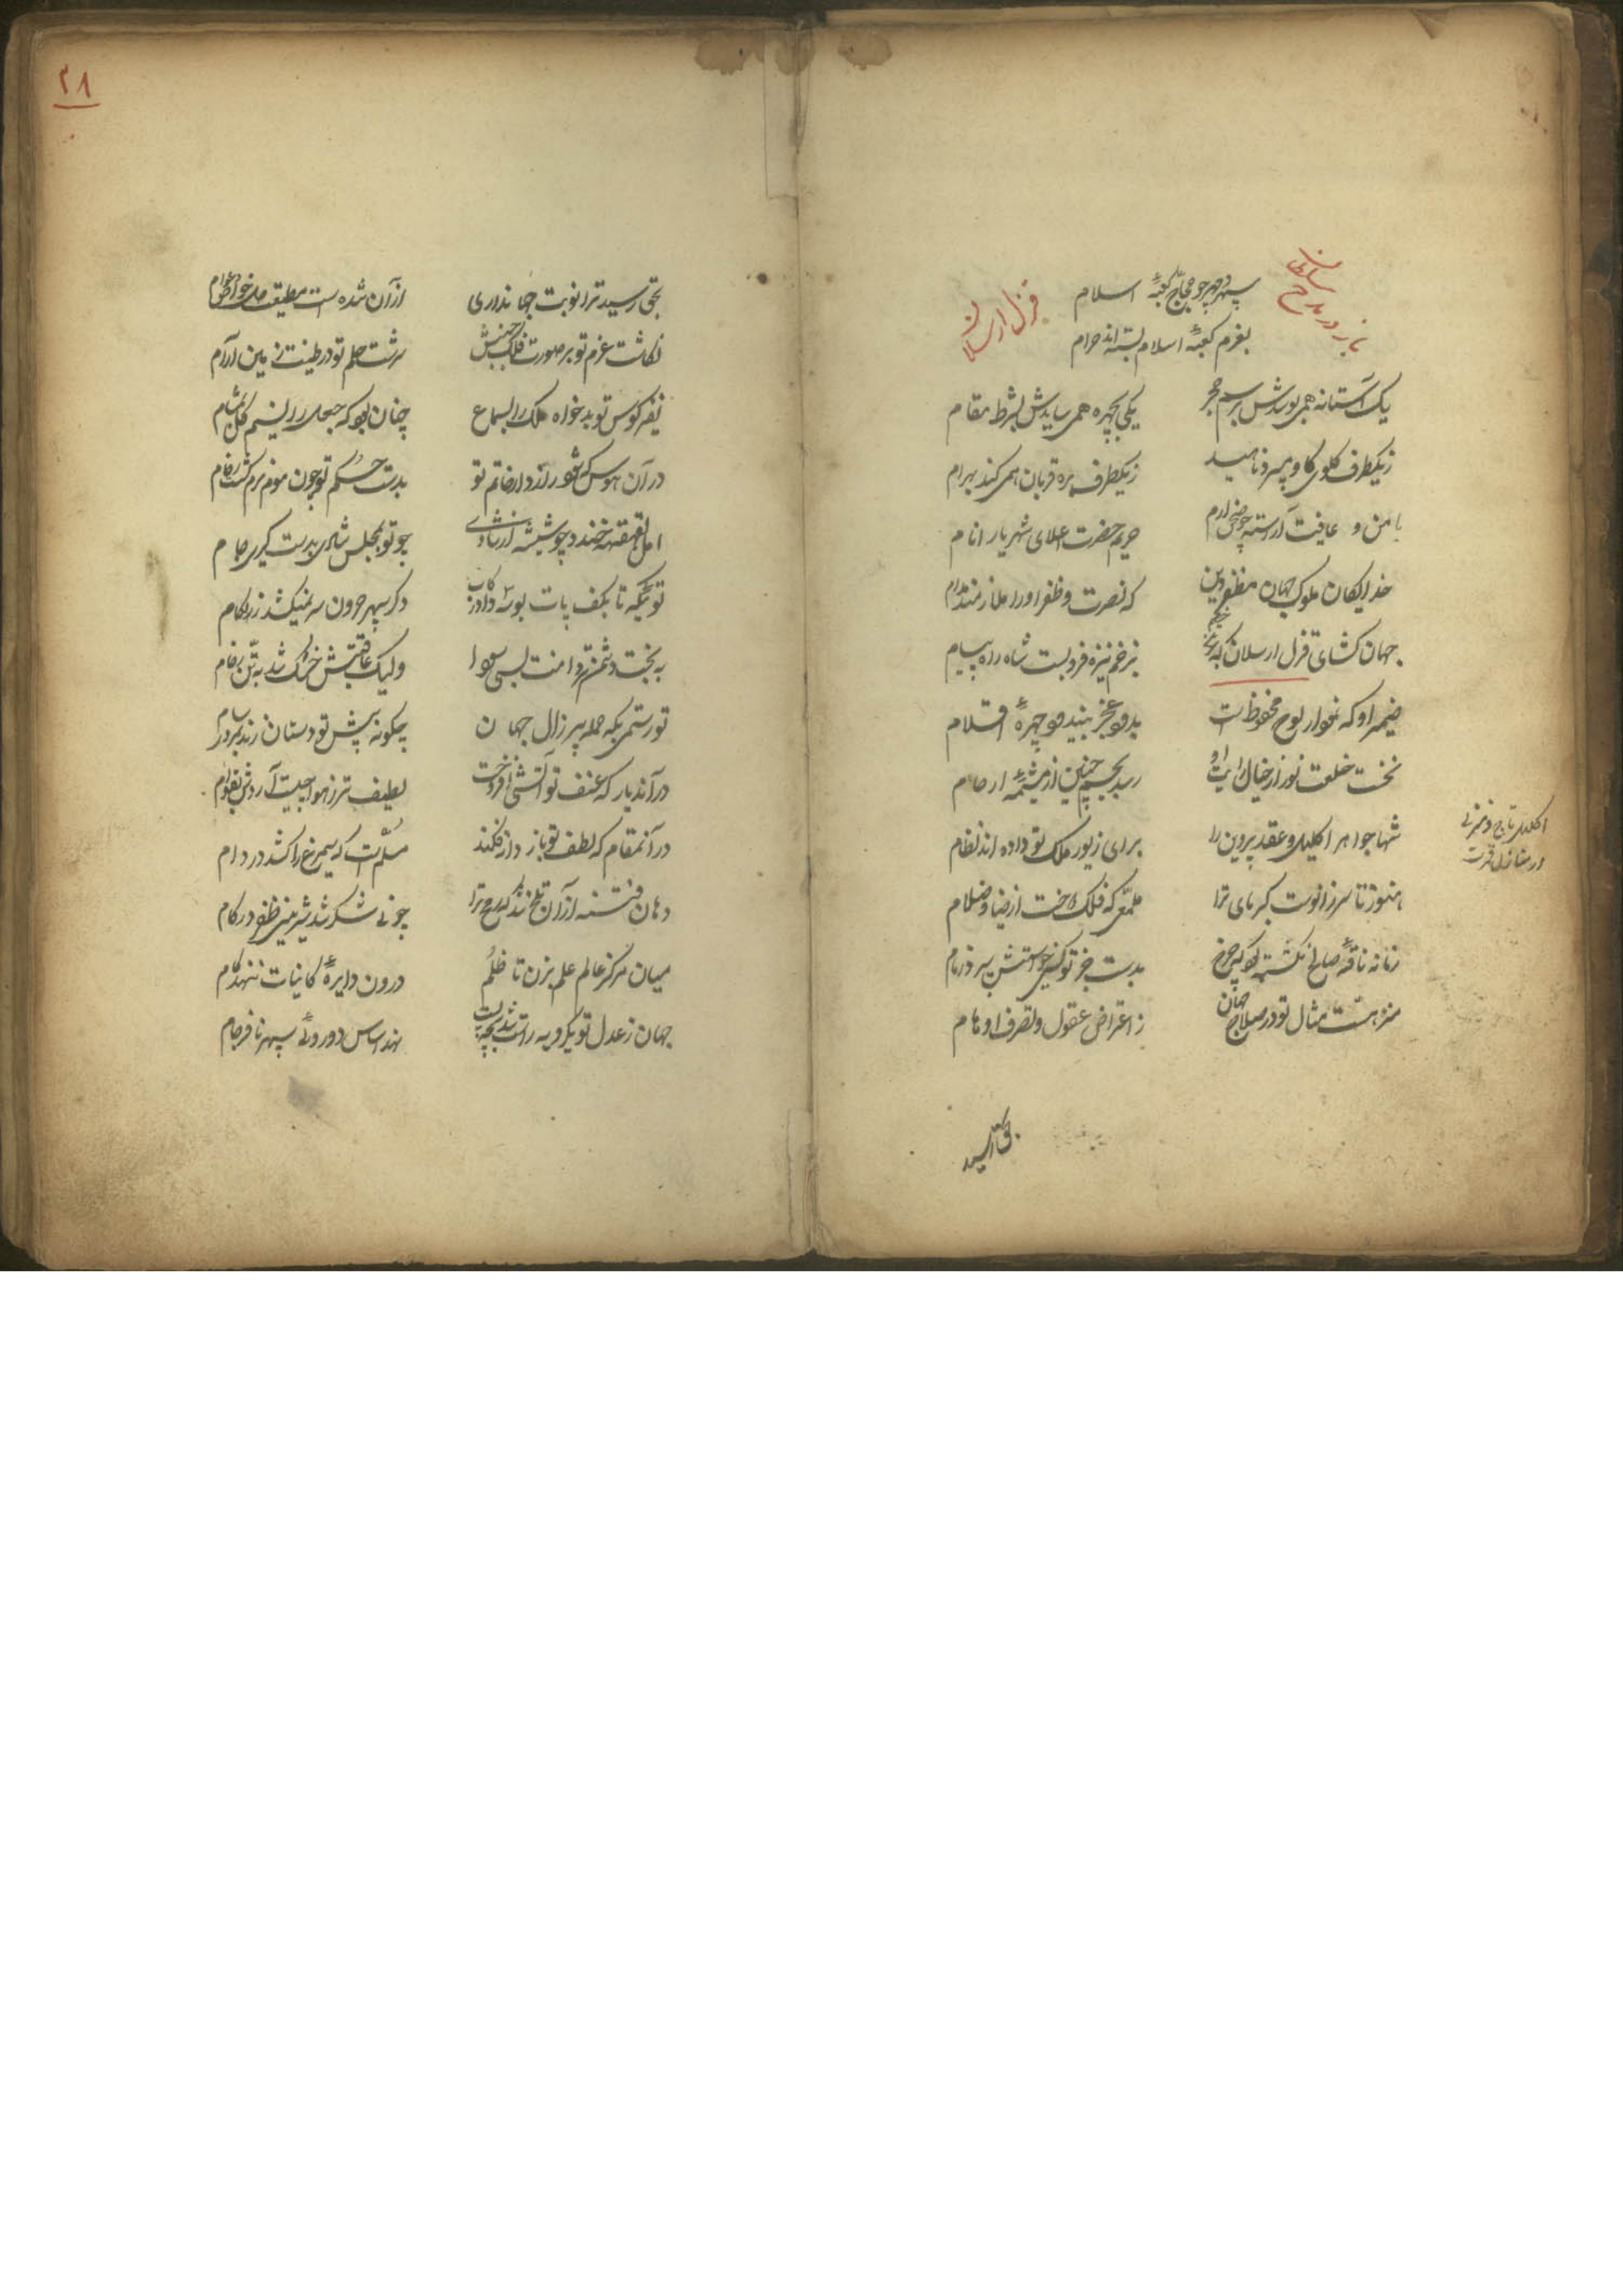 باز در مدح سلطان
قزل ارسلان
سپهر و مهر چو حجاج کعبهٔ اسلام
بعزم کعبهٔ اسلام بسته اند احرام
یک آستانه همی بوسدش برسم حجر
یکی بچهره همی سایدش بشرط مقام
ز یکطرف گلوی گاو میبرد ناهید
ز یکطرف بره قربان همی کند بهرام
بامن و عافیت آراسته چو صحن ارم
حریم حضرت اعلای شهریار انام
خدایگان ملوک جهان مظفر دین
که نصرت و ظفر او را ملازمند مدام
جهان کشای قزل ارسلان که
بزخم نیزه فرو بست شاه راه پیام
ضمیر او که نمودار لوح محفوظ است
بدو بعجز ببیند چو چهرهٔ اقلام
نخست خلعت نور از خیال رایت او
رسد بچشم جنین از مشیمهٔ ارحام
شها جواهر اکلیل و عقد پروین را
برای زیور ملک تو داده اند نظام
هنوز تا سر زانوست کبریای ترا
ملمعی که فلک دوخت از ضیا و ظلام
زمانه ناقهٔ صالح نکشته بود که چرخ
بدست جز تو کسی خواستش سپرد زمام
منزهست مثال تو در صلاح جهان
ز اعتراض عقول و تصرف اوهام
اکلیل تاج و منزلی
از منازل قمرست
بحق رسید
۲۸
بحق رسید ترا نوبت جهانداری
از آن شده است مطیعت همه خواص و عوام
نکاشت عزم تو بر صورت فلک جنبش
سرشت حلم تو در طینت زمین آرام
نفیر کوس تو بدخواه ملک را بسماع
چنان بود که جعل را نسیم گل بمشام
در آن هوس که شود رازدار خاتم تو
بدست حکم تو چون موم نرم گشت رخام
امل بقهقهه خندد چو شیشه از شادی
چو تو بمجلس شاهی بدست گیری جام
توئیکه تا بکف پات بوسه داد رکاب
دگر سپهر حرون سر نمیکشد ز لگام
به بخت دشمن تو دامنت بسی
ولیک عاقبتش خرک شد به بتن رغام
تو رستمی بگه حمله پیر زال جهان
چگونه پیش تو دستان زند
در آندیار که عنف تو آتشی افروخت
لطیف تر ز هوا چیست آردش بقوام
در آنمقام که لطف تو باز دانه فکند
مسلّم است که سیمرغ را کشد در دام
دهان فتنه از آن تلخ شد که رمح ترا
چو نی شکر شد شیرینی ظفر در کام
میان مرکز عالم علم بزن تا ظلم
درون دایرهٔ کاینات ننهد گام
جهان ز عدل تو یکرویه راست شد
نهد اساس دوروئی سپهر نافرجام